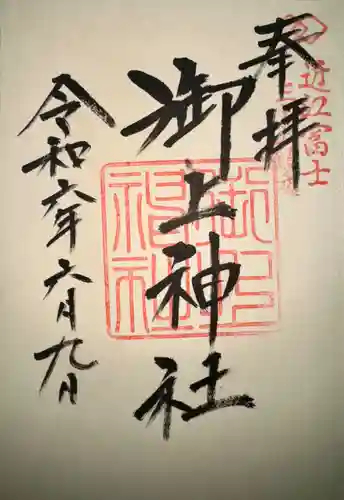 奉拝
近江富士
御上神社
令和六年六月九日